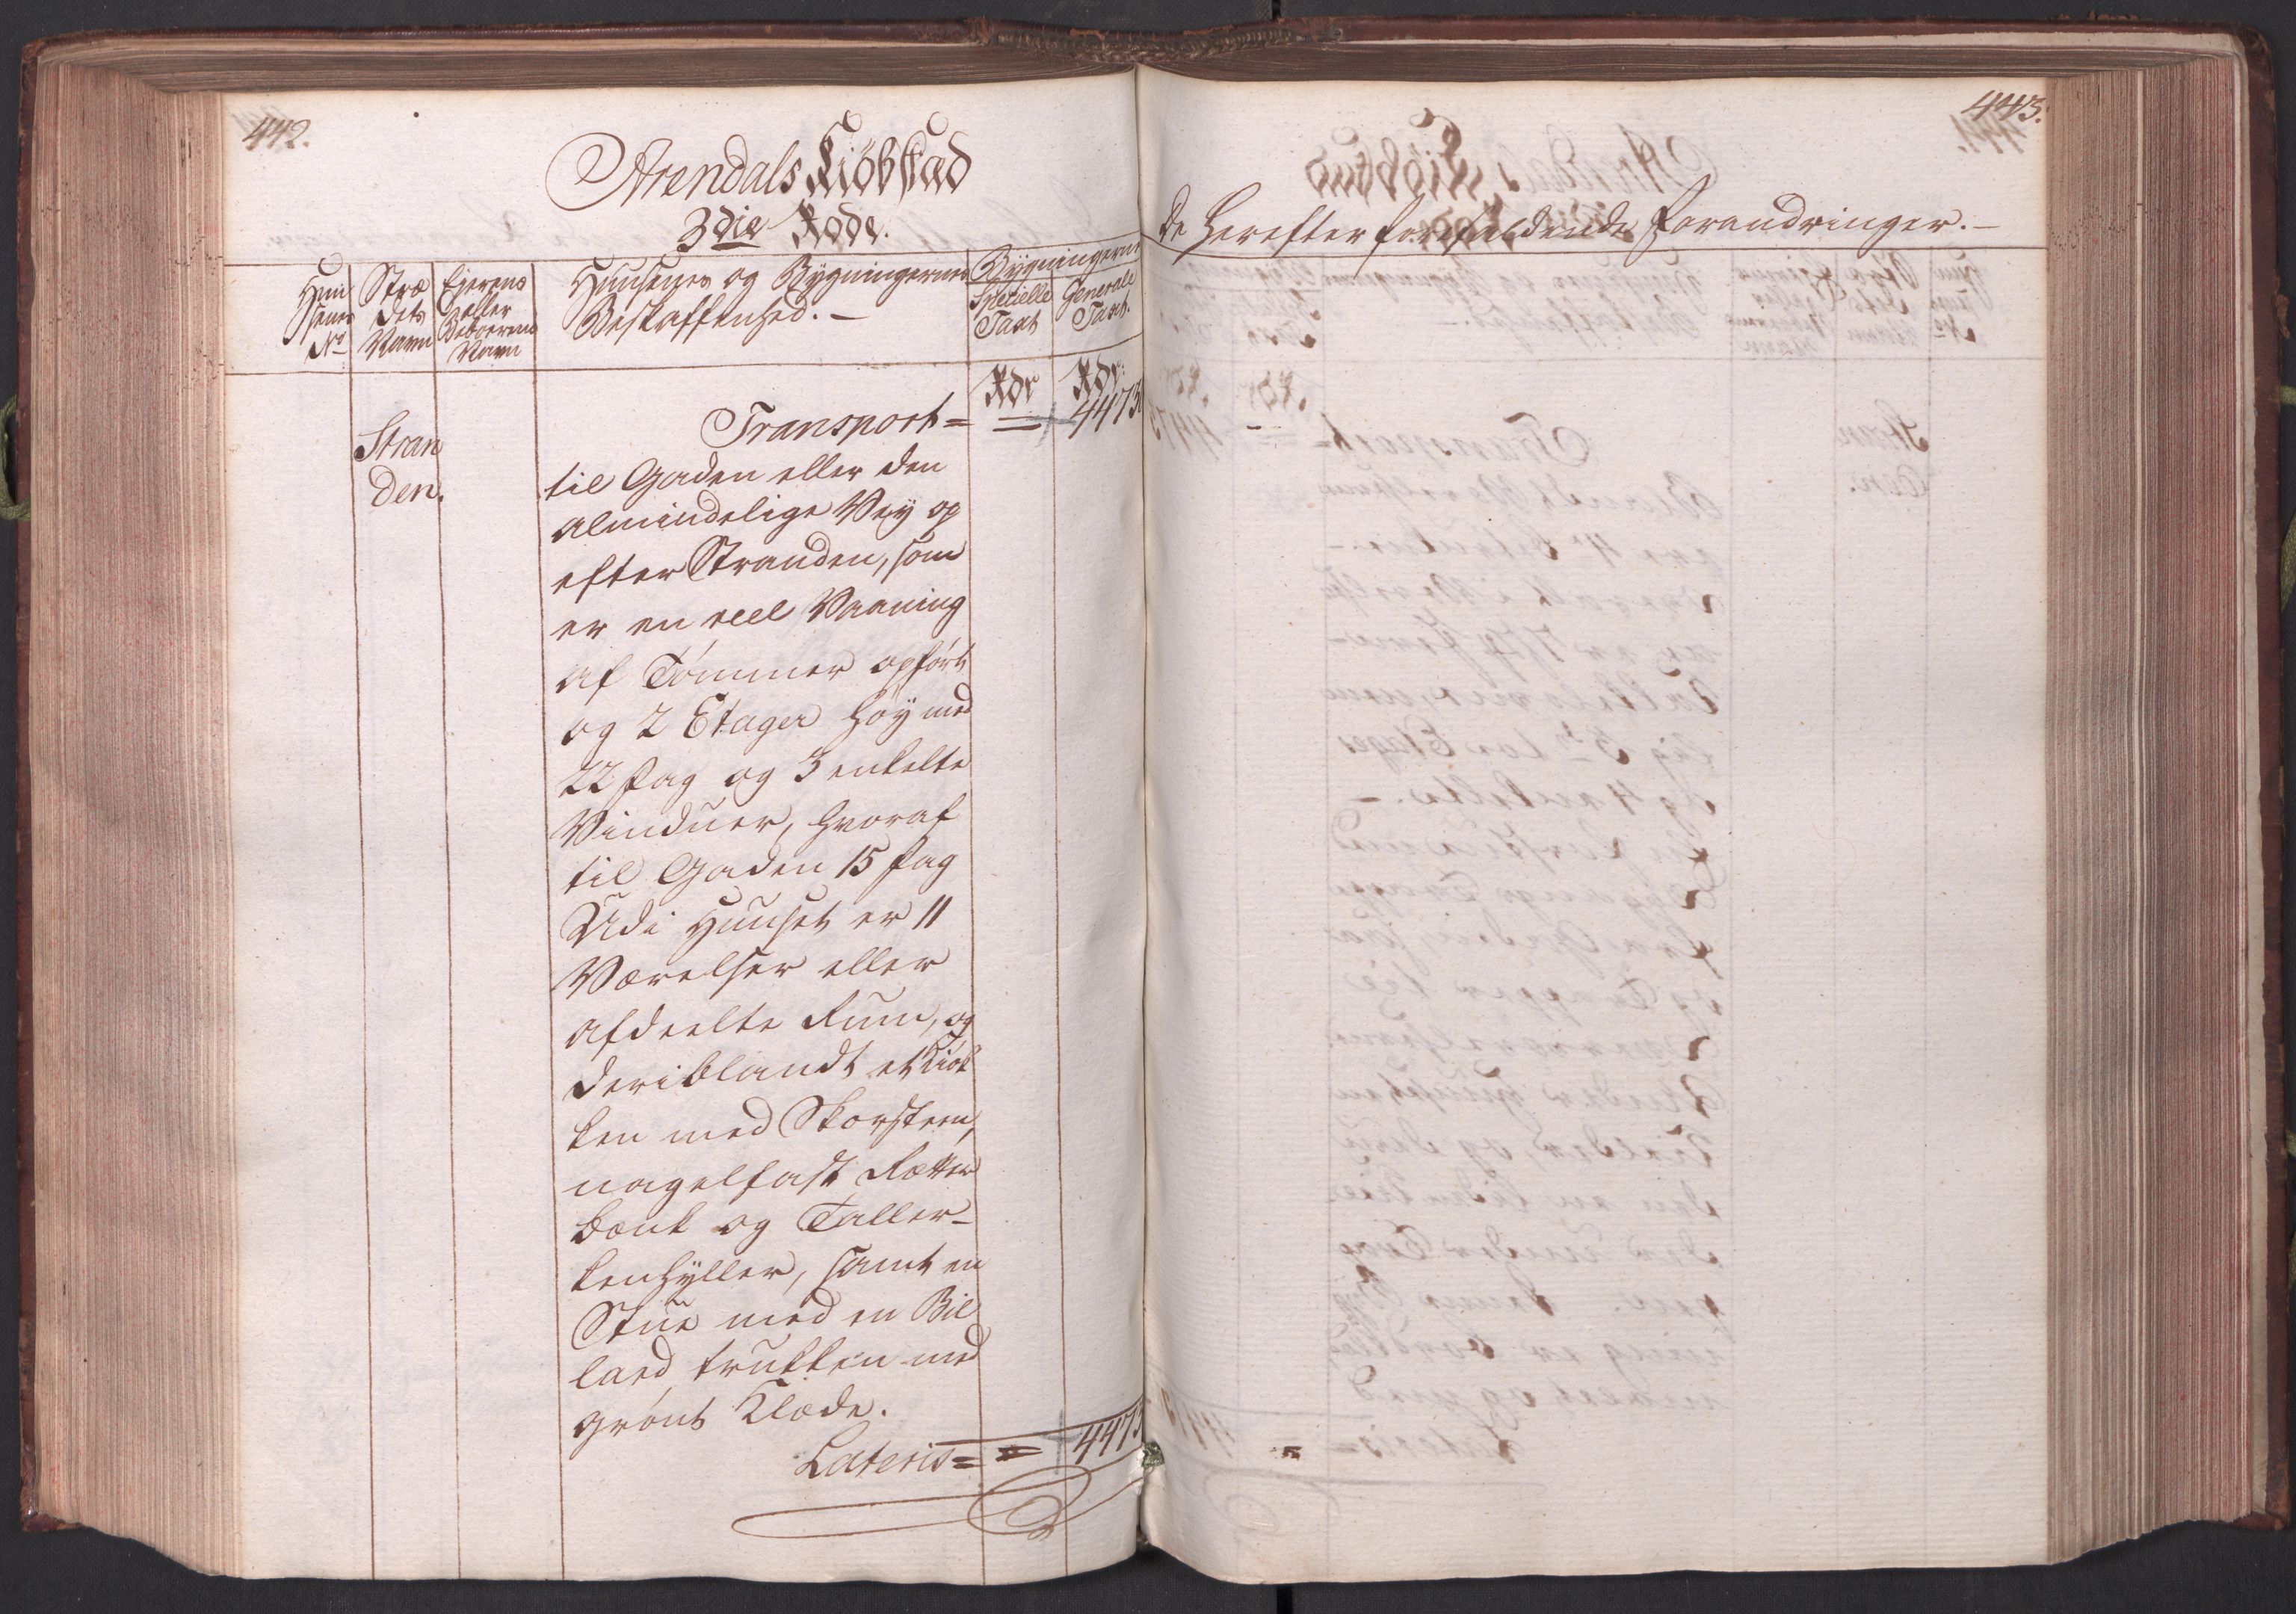 442.
Arendals Kiöbstad
3die Rode.
Huu
senes
No
Stræ
dets
Navn
Ejerens
eller
Beboerens
Navn
Huusenes og Bÿgningernes
Beskaffenhed. —
Bÿgningernes
Specielle
Taxt
Generale
Taxt.
Rdr
Rdr:
Transport = = 4473
Stran
den.
til Gaden eller den
almindelige Veÿ op
efter Stranden, som
er en reel Vaaning
af Tømmer opført
og 2 Etager høÿ med
22 fag og 3 enkelte
Vinduer, hvoraf
til Gaden 15 fag
Udi Huuset er 11
Værelser eller
afdeelte Rum, og
deriblandt et Kiøk
ken med Skorsteen,
nagelfast Retter
bænk og Taller-
kenhÿller, samt en
Stue med en Bil
lard trukken med
grønt Klæde.
Lateris = = 4473
443.
De herefter forefaldende Forandringer. —